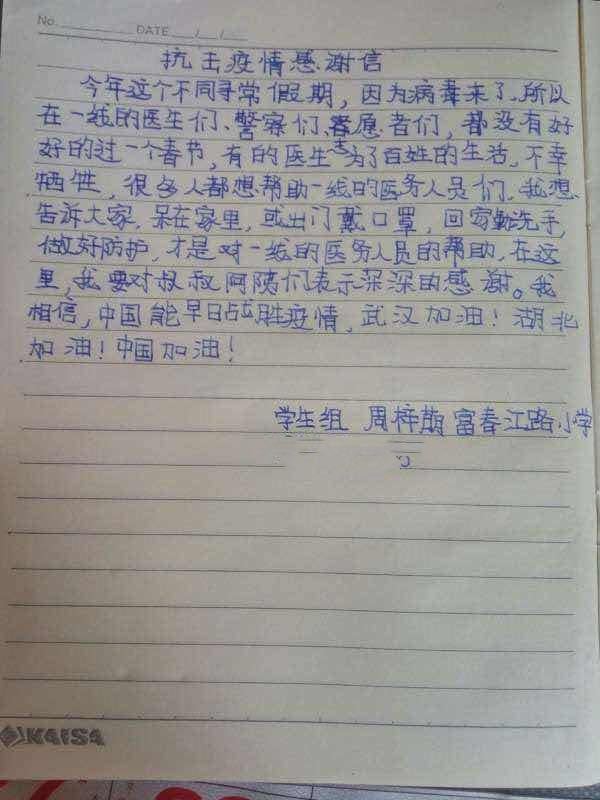 No.
DATE / /
抗击疫情感谢信
今年这个不同寻常假期，因为病毒来了，所以
在一线的医生们、警察们、志愿者们，都没有好
好的过一个春节，有的医生为了百姓的生活，不幸
牺牲，很多人都想帮助一线的医务人员们，我想
告诉大家，呆在家里，或出门戴口罩，回家勤洗手，
做好防护，才是对一线的医务人员的帮助，在这
里，我要对叔叔阿姨们表示深深的感谢。我
相信，中国能早日占战胜疫情，武汉加油！湖北
加油！中国加油！
学生组 周梓萌 富春江路小学
KAISA